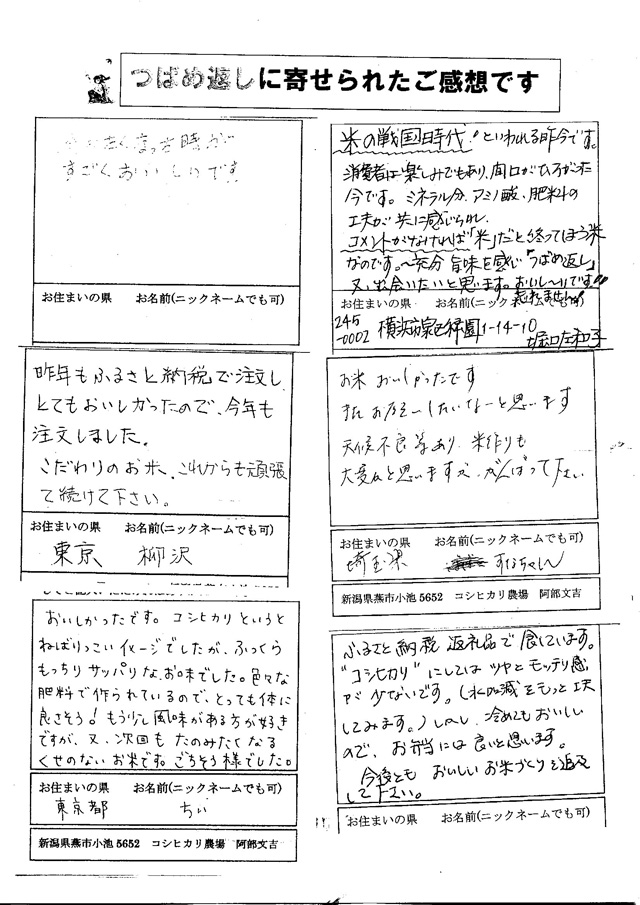 つばめ返しに寄せられたご感想です
すごくおいしいです
お住まいの県 お名前(ニックネームでも可)
米の戦国時代といわれる昨今です。
消費者は楽しみでもあり、間口がひろがった
今です。ミネラル分、アミノ酸、肥料の
工夫が共に感じられ、
コメントがなければ「米」だと終ってしまう米
なのです。〜充分旨味を感じ「つばめ返し」
又出会いたいと思います。おいし〜いです!!
忘れません!
お住まいの県 お名前(ニックネームでも可)
245
-0002 横浜市泉区緑園1-14-10
堀口左和子
昨年もふるさと納税で注文し
とてもおいしかったので、今年も
注文しました。
こだわりのお米、これからも頑張っ
て続けて下さい。
お住まいの県 お名前(ニックネームでも可)
東京 柳沢
お米 おいしかったです
また お店へしたいなーと思います
天候不良等あり、米作りも
大変かと思いますが、がんばって下さい
お住まいの県 お名前(ニックネームでも可)
埼玉県 すなちゃん
新潟県燕市小池5652 コシヒカリ農場 阿部文吉
おいしかったです。コシヒカリというと
ねばりっこいイメージでしたが、ふっくら
もっちりサッパリな、お味でした。色々な
肥料で作られているので、とっても体に
良さそう!もう少し風味がある方が好き
ですが、又、次回も たのみたくなる
くせのないお米です。ごちそう様でした。
お住まいの県 お名前(ニックネームでも可)
東京都 ちぃ
新潟県燕市小池5652 コシヒカリ農場 阿部文吉
ふるさと納税 返礼品で食しています。
"コシヒカリ"にしてはツヤとモッチリ感
が少ないです。(水加減をもっと工夫
してみます。)しかし、冷めてもおいしい
ので、お弁当には良いと思います。
今後とも おいしいお米づくりを追及
して下さい。
お住まいの県 お名前(ニックネームでも可)